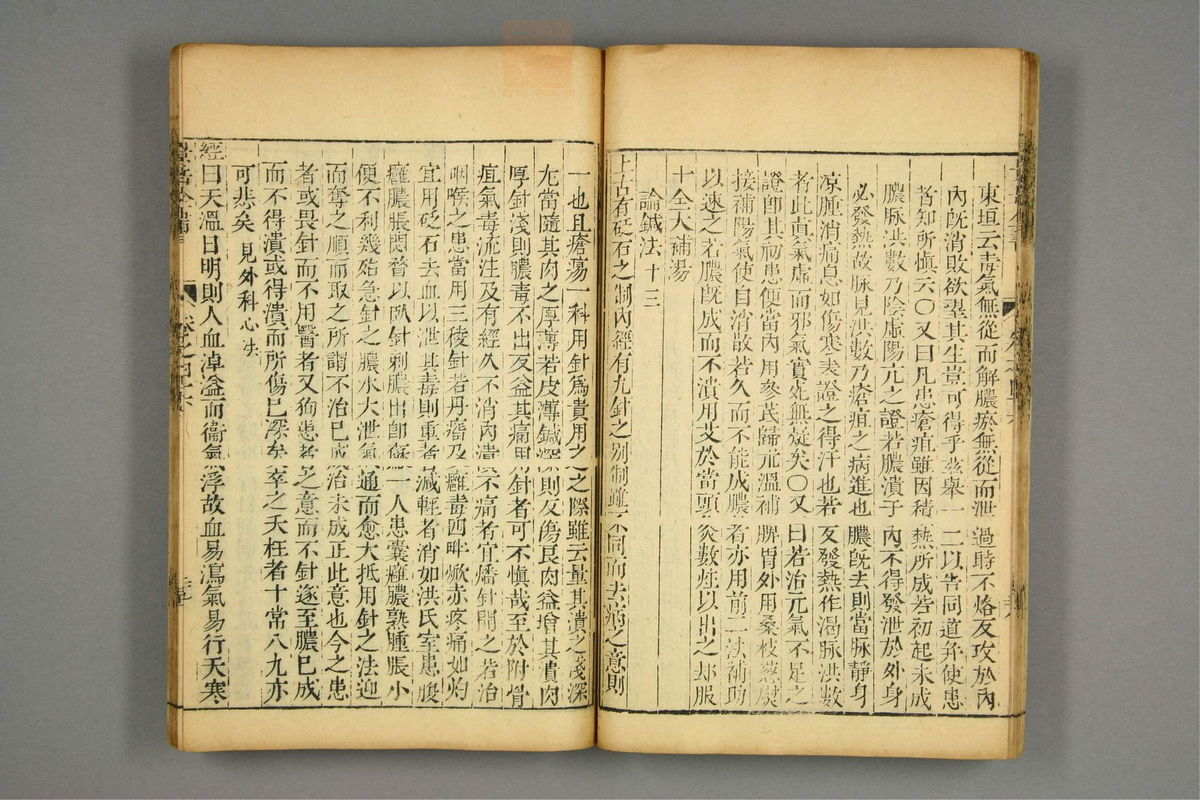 東垣云毒氣無從而解膿瘀無從而泄過時不烙反攻於內
內既消敗欲望其生豈可得乎茲舉一二以告同道并使患
者知所慎云〇又曰凡患瘡疽雖因積熱所成若初起未成
膿脉洪數乃陰虛陽亢之證若膿潰于內不得發泄於外身
必發熱故脉見洪數乃瘡疽之病進也膿既去則當脉靜身
涼腫消痛息如傷寒表證之得汗也若反發熱作渴脉洪數
者此真氣虛而邪氣實死無疑矣〇又曰若治元氣不足之
證即其初患便當內用參芪歸朮溫補脾胃外用桑枝葱熨
接補陽氣使自消散若久而不能成膿者亦用前二法補助
以速之若膿既成而不潰用艾於當頭灸數壯以出之却服
十全大補湯
論鍼法十三
上古有砭石之制內經有九針之別制雖不同而去病之意則
一也且瘡瘍一科用針為貴用之之際雖云量其潰之淺深
尤當隨其肉之厚薄若皮薄鍼深則反傷良肉益增其潰肉
厚針淺則膿毒不出反益其痛用針者可不慎哉至於附骨
疽氣毒流注及有經久不消內潰不痛者宜燔針開之若治
咽喉之患當用三稜針若丹瘤及癰毒四畔㷔赤疼痛如灼
宜用砭石去血以泄其毒則重者減輕者消如洪氏室患腹
癰膿脹悶瞀以臥針刺膿出即蘇一人患囊癰膿熟腫脹小
便不利幾殆急針之膿水大泄氣通而愈大抵用針之法迎
而奪之順而取之所謂不治已成治未成正此意也今之患
者或畏針而不用醫者又徇患者之意而不針遂至膿已成
而不得潰或得潰而所傷已深矣卒之夭枉者十常八九亦
可悲矣 見外科心法
經曰天溫日明則人血淖溢而衞氣浮故血易瀉氣易行天寒